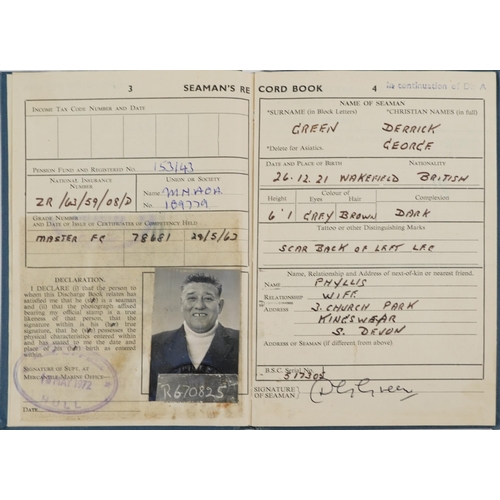 3 SEAMAN'S RE
INCOME TAX CODE NUMBER AND DATE
PENSION FUND AND REGISTERED NO. 153/43
NATIONAL INSURANCE NUMBER
UNION OR SOCIETY
ZR/62/59/08/D
Name MNAOA
No. 189779
GRADE NUMBER
AND DATE OF ISSUE OF CERTIFICATES OF COMPETENCY HELD
MASTER FG 78681 28/5/63
DECLARATION.
I DECLARE (i) that the person to
whom this Discharge Book relates has
satisfied me that he is a seaman
and (ii) that the photograph affixed
bearing my official stamp is a true
likeness of that person, that the
signature within is his true
signature, that he possesses the
physical characteristics entered within
and has stated to me the date and
place of his birth as entered
within.
SIGNATURE OF SUPT. AT
MERCANTILE MARINE OFFICE:
MAY 1972
HULL
DATE
R670825
CORD BOOK 4
In continuation of
NAME OF SEAMAN
*SURNAME (in Block Letters) *CHRISTIAN NAMES (in full)
GREEN DERRICK
*Delete for Asiatics. GEORGE
DATE AND PLACE OF BIRTH NATIONALITY
26.12.21 WAKEFIELD BRITISH
Height Colour of Eyes Hair Complexion
6'1 GREY BROWN DARK
Tattoo or other Distinguishing Marks
SCAR BACK OF LEFT LEG
Name, Relationship and Address of next-of-kin or nearest friend.
NAME PHYLLIS
RELATIONSHIP WIFE
ADDRESS 3. CHURCH PARK
KINGSWEAR
S. DEVON
ADDRESS OF SEAMAN (if different from above)
B.S.C. Serial No.
517302
SIGNATURE OF SEAMAN D G Green